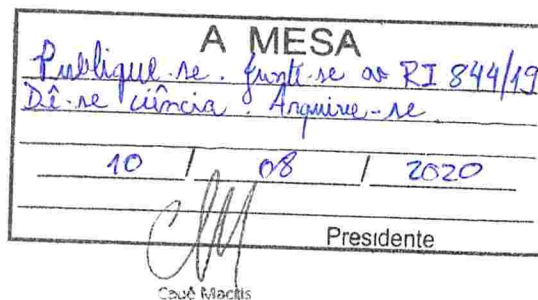 A MESA
Publique-se. Junte-se ao RI 844/19
Dê-se ciência. Arquive-se
10 / 08 / 2020
Presidente
Cauê Macris